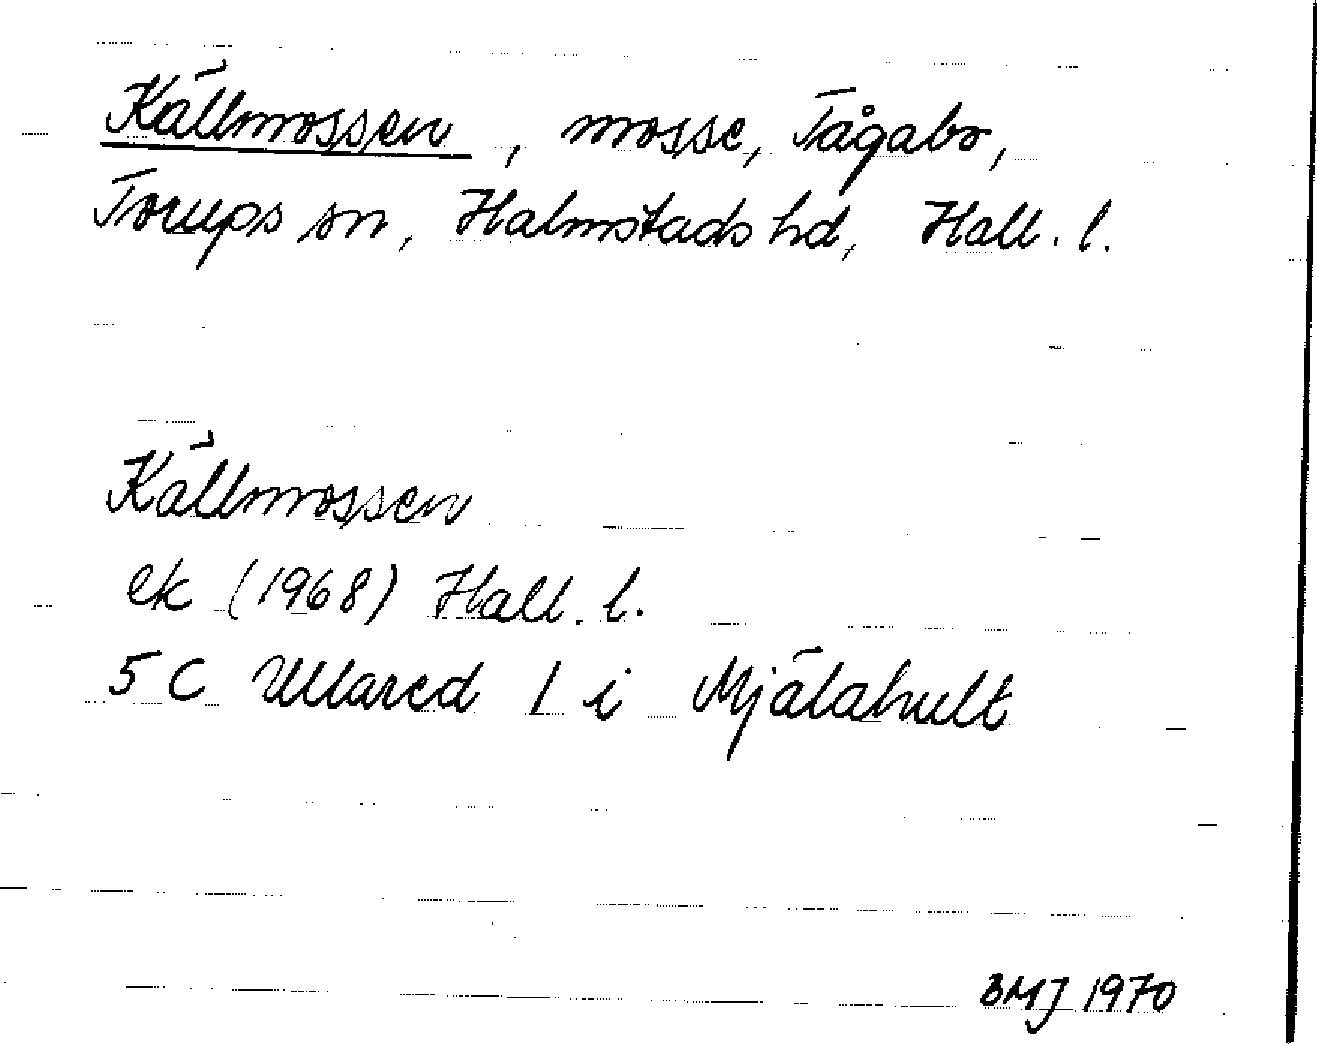 Källmossen, mosse, Tågabo,
Torups sn, Halmstads hd, Hall. l.
Källmossen
ek (1968) Hall. l.
5 C Ullared l i Mjälahult
BMJ 1970